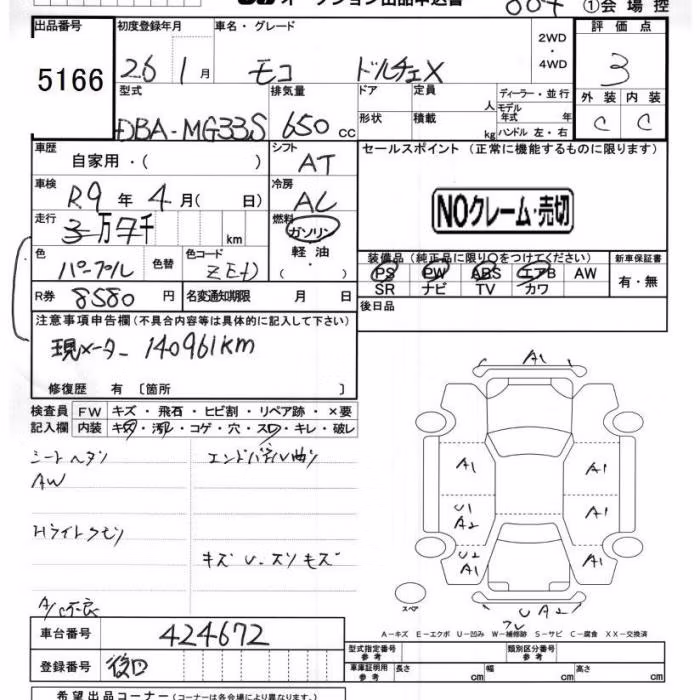 オークション出品申込書
①会場控
出品番号 5166
初度登録年月 26 1月
車名・グレード モコ ドルチェX
2WD・4WD
評価点 3
外装 C 内装 C
型式 DBA-MG33S
排気量 650 cc
ドア 定員 人
形状 積載 kg
ディーラー・並行
モデル年式 年
ハンドル 左・右
車歴 自家用・( )
シフト AT
セールスポイント (正常に機能するものに限ります)
NOクレーム・売切
車検 R9年 4月( 日)
冷房 AC
走行 3万7千 km
燃料 ガソリン・軽油・( )
色 パープル 色替
色コード ZED
装備品 (純正品に限り○をつけてください)
PS PW ABS エアB AW
SR ナビ TV カワ
新車保証書 有・無
R券 8580円
名変通知期限 月 日
後日品
注意事項申告欄(不具合内容等は具体的に記入して下さい)
現メーター 140961km
修復歴 有 〔箇所 〕
検査員記入欄
FW キズ・飛石・ヒビ割・リペア跡・×要
内装 キズ・汚れ・コゲ・穴・スレ・キレ・破レ
シートヘタリ
エンドパネル曲り
AW
Hライトクモリ
キズ U.スリキズ
A/C不良
A1
A1 A1
U1 A2 A1
U2 A1 A1
スペア
U A2
A-キズ E-エクボ U-凹み W-補修跡 S-サビ C-腐食 XX-交換済
車台番号 424672
登録番号 後日
型式指定番号 参考
類別区分番号 参考
車庫証明用 参考 長さ cm 幅 cm 高さ cm
希望出品コーナー(コーナーは各会場により異なります。)